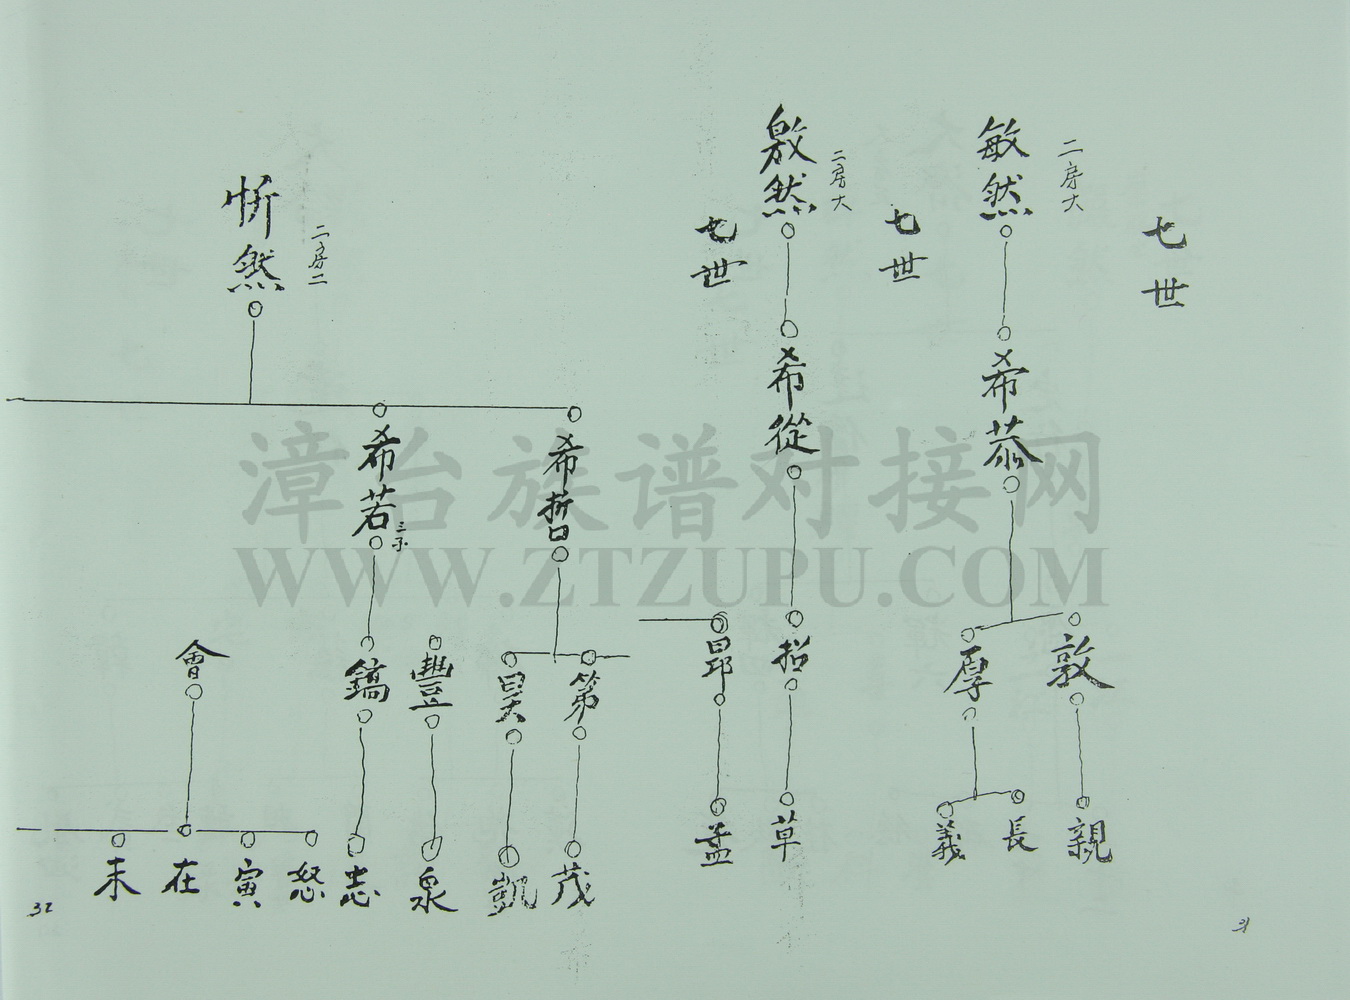 七世
二房大
敏然
希恭
敦
厚
親
長
義
七世
二房大
敫然
希從
招
昴
草
孟
七世
二房二
忻然
希哲
希若
第
昊
豐
鎬
會
茂
凱
泉
志
怒
寅
在
未
31
32
漳台族谱对接网
WWW.ZTZUPU.COM